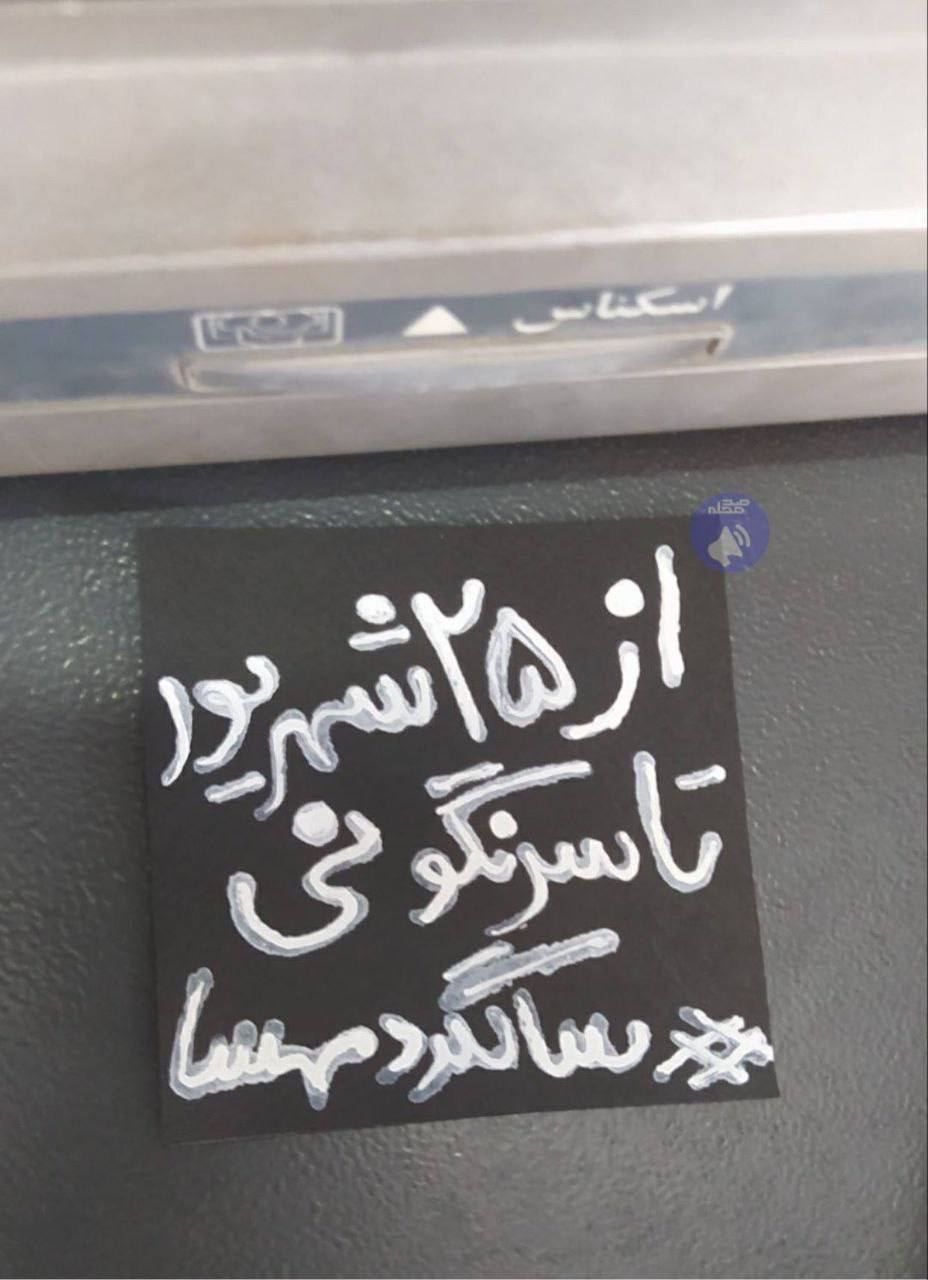 اسکناس
صد محله
از ۲۵ شهریور
تا سرنگونی
#سالگرد مهسا